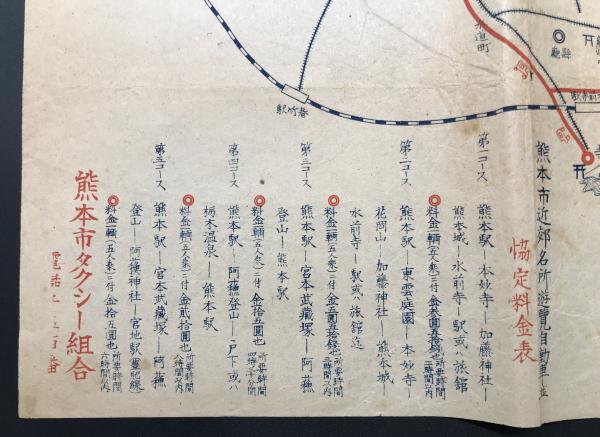 水道町
縣廳
春竹駅
熊本市近郊名所遊覽自動車
協定料金表
第一コース 熊本駅ー本妙寺ー加藤神社ー
熊本城ー水前寺ー駅或ハ旅館
料金一輌(五人乗)ニ付金参圓五拾銭也
第二コース 熊本駅ー東雲庭園ー本妙寺ー
花岡山ー加藤神社ー熊本城ー
水前寺ー駅或ハ旅館迄
料金一輌(五人乗)ニ付金五圓五拾銭也
第三コース 熊本駅ー宮本武蔵塚ー阿蘇
登山ー熊本駅
料金一輌(五人乗)ニ付金拾五圓也
第四コース 熊本駅ー阿蘇登山ー戸下或ハ
栃木温泉ー熊本駅
料金一輌(五人乗)ニ付金貳拾圓也 所要時間八時間以内
第五コース 熊本駅ー宮本武蔵塚ー阿蘇
登山ー阿蘇神社ー宮地駅(豊肥線)
料金一輌(五人乗)ニ付金拾五圓也 所要時間六時間以内
熊本市タクシー組合
電話